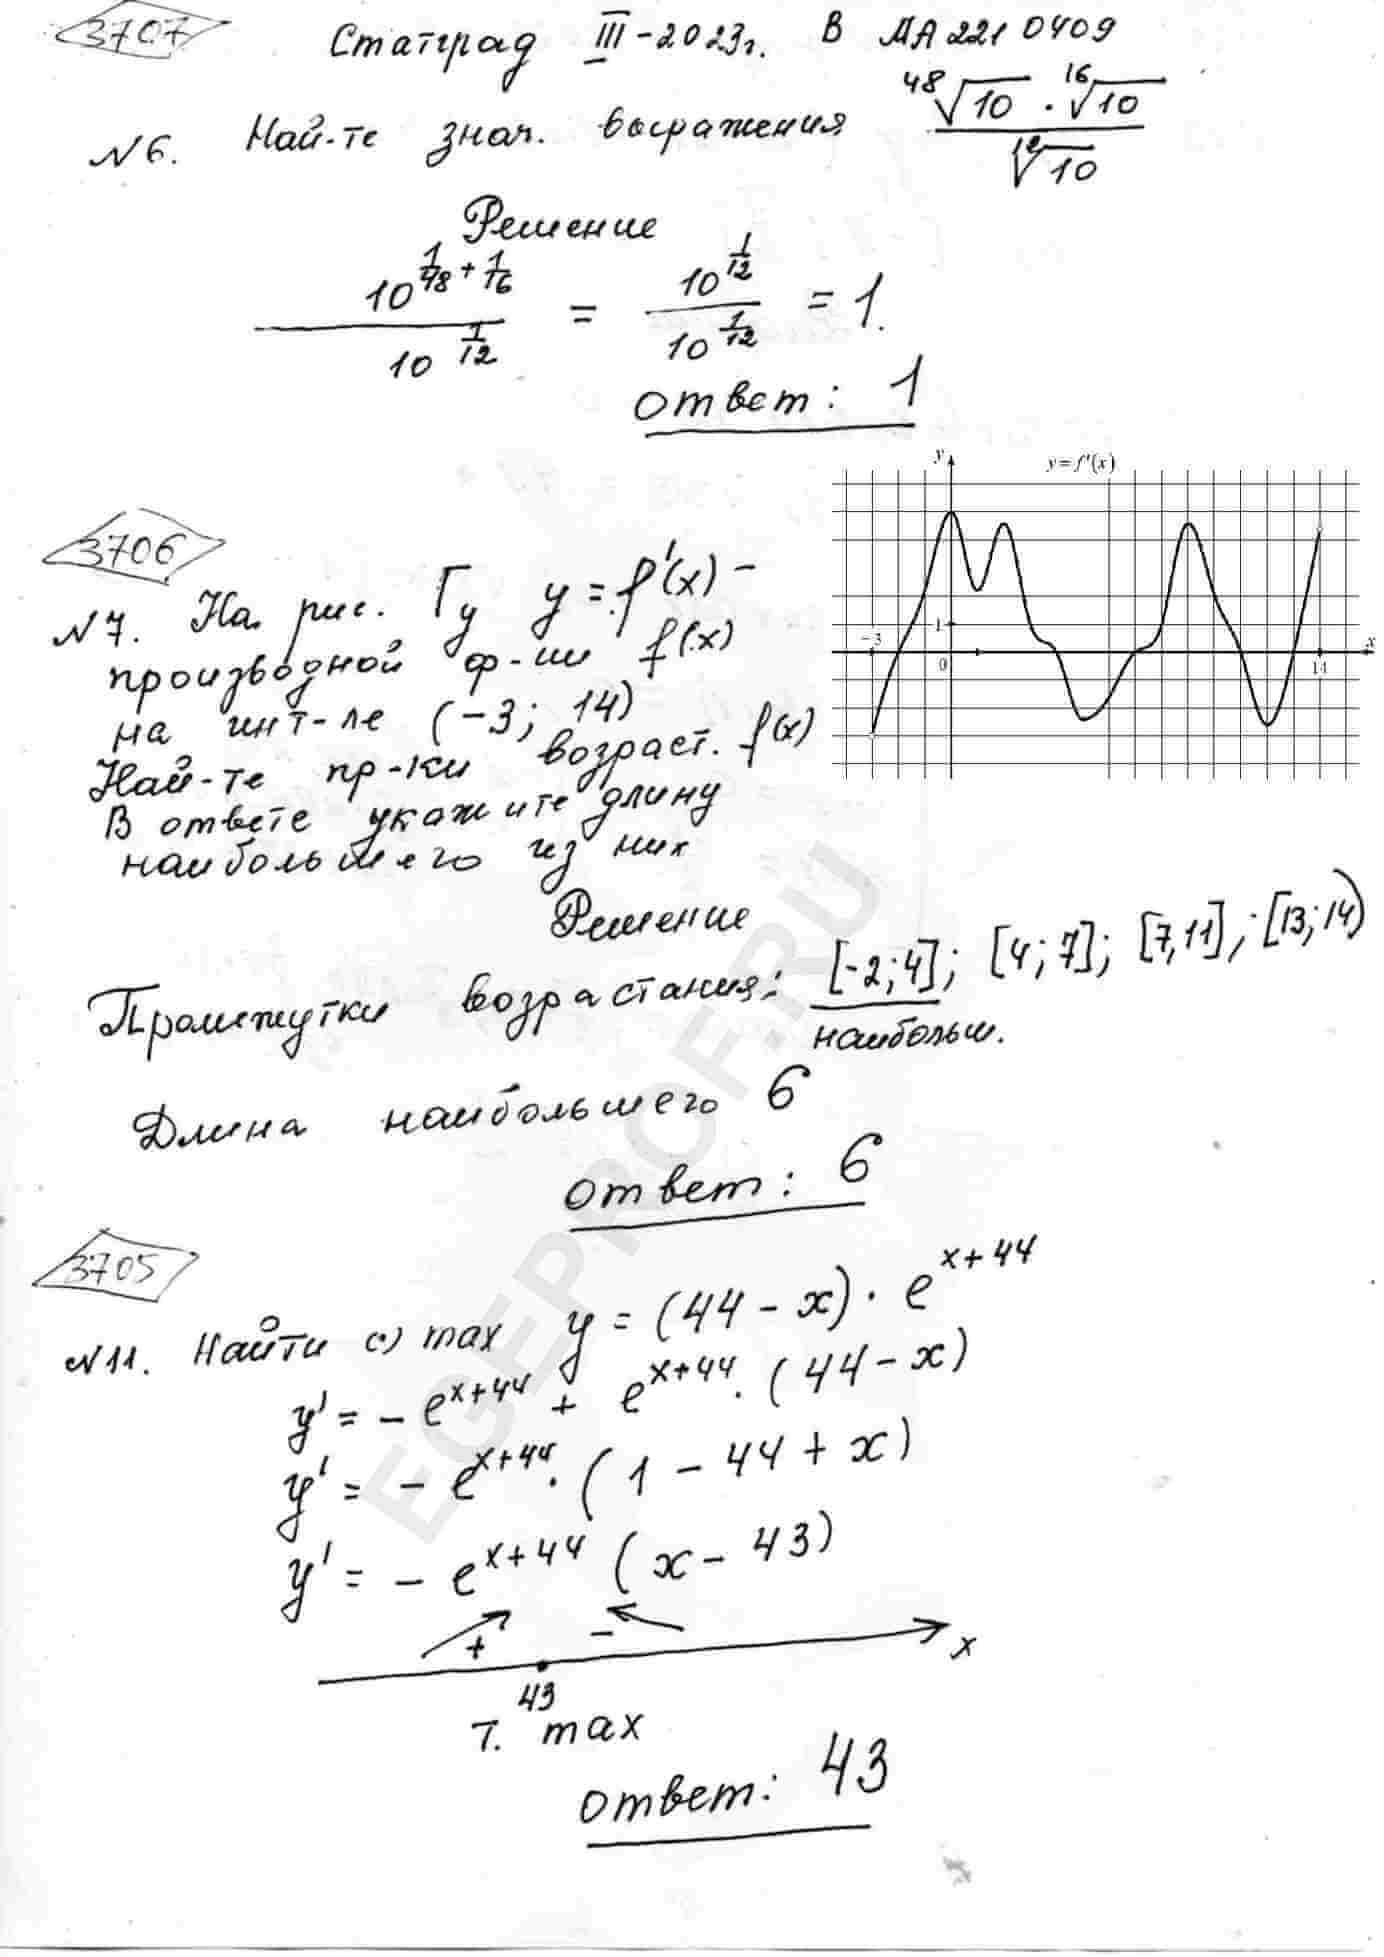 3707
Статград III-2023г. В МА2210409
№6. Най-те знач. выражения \frac{\sqrt[48]{10} \cdot \sqrt[16]{10}}{\sqrt[12]{10}}
Решение
\frac{10^{\frac{1}{48}+\frac{1}{16}}}{10^{\frac{1}{12}}} = \frac{10^{\frac{1}{12}}}{10^{\frac{1}{12}}} = 1.
Ответ: 1
y y=f'(x)
-3 1 0 14 x
3706
№7. На рис. Гу y=f'(x) -
производной ф-ии f(x)
на инт-ле (-3; 14)
Най-те пр-ки возраст. f(x)
В ответе укажите длину
наибольшего из них
Решение
Промежутки возрастания: [-2;4]; [4;7]; [7,11]; [13;14)
наибольш.
Длина наибольшего 6
Ответ: 6
3705
№11. Найти (·) max y = (44-x)·e^{x+44}
y' = -e^{x+44} + e^{x+44}·(44-x)
y' = -e^{x+44}·(1-44+x)
y' = -e^{x+44}(x-43)
+ - x
43
т. max
Ответ: 43
EGEPROF.RU